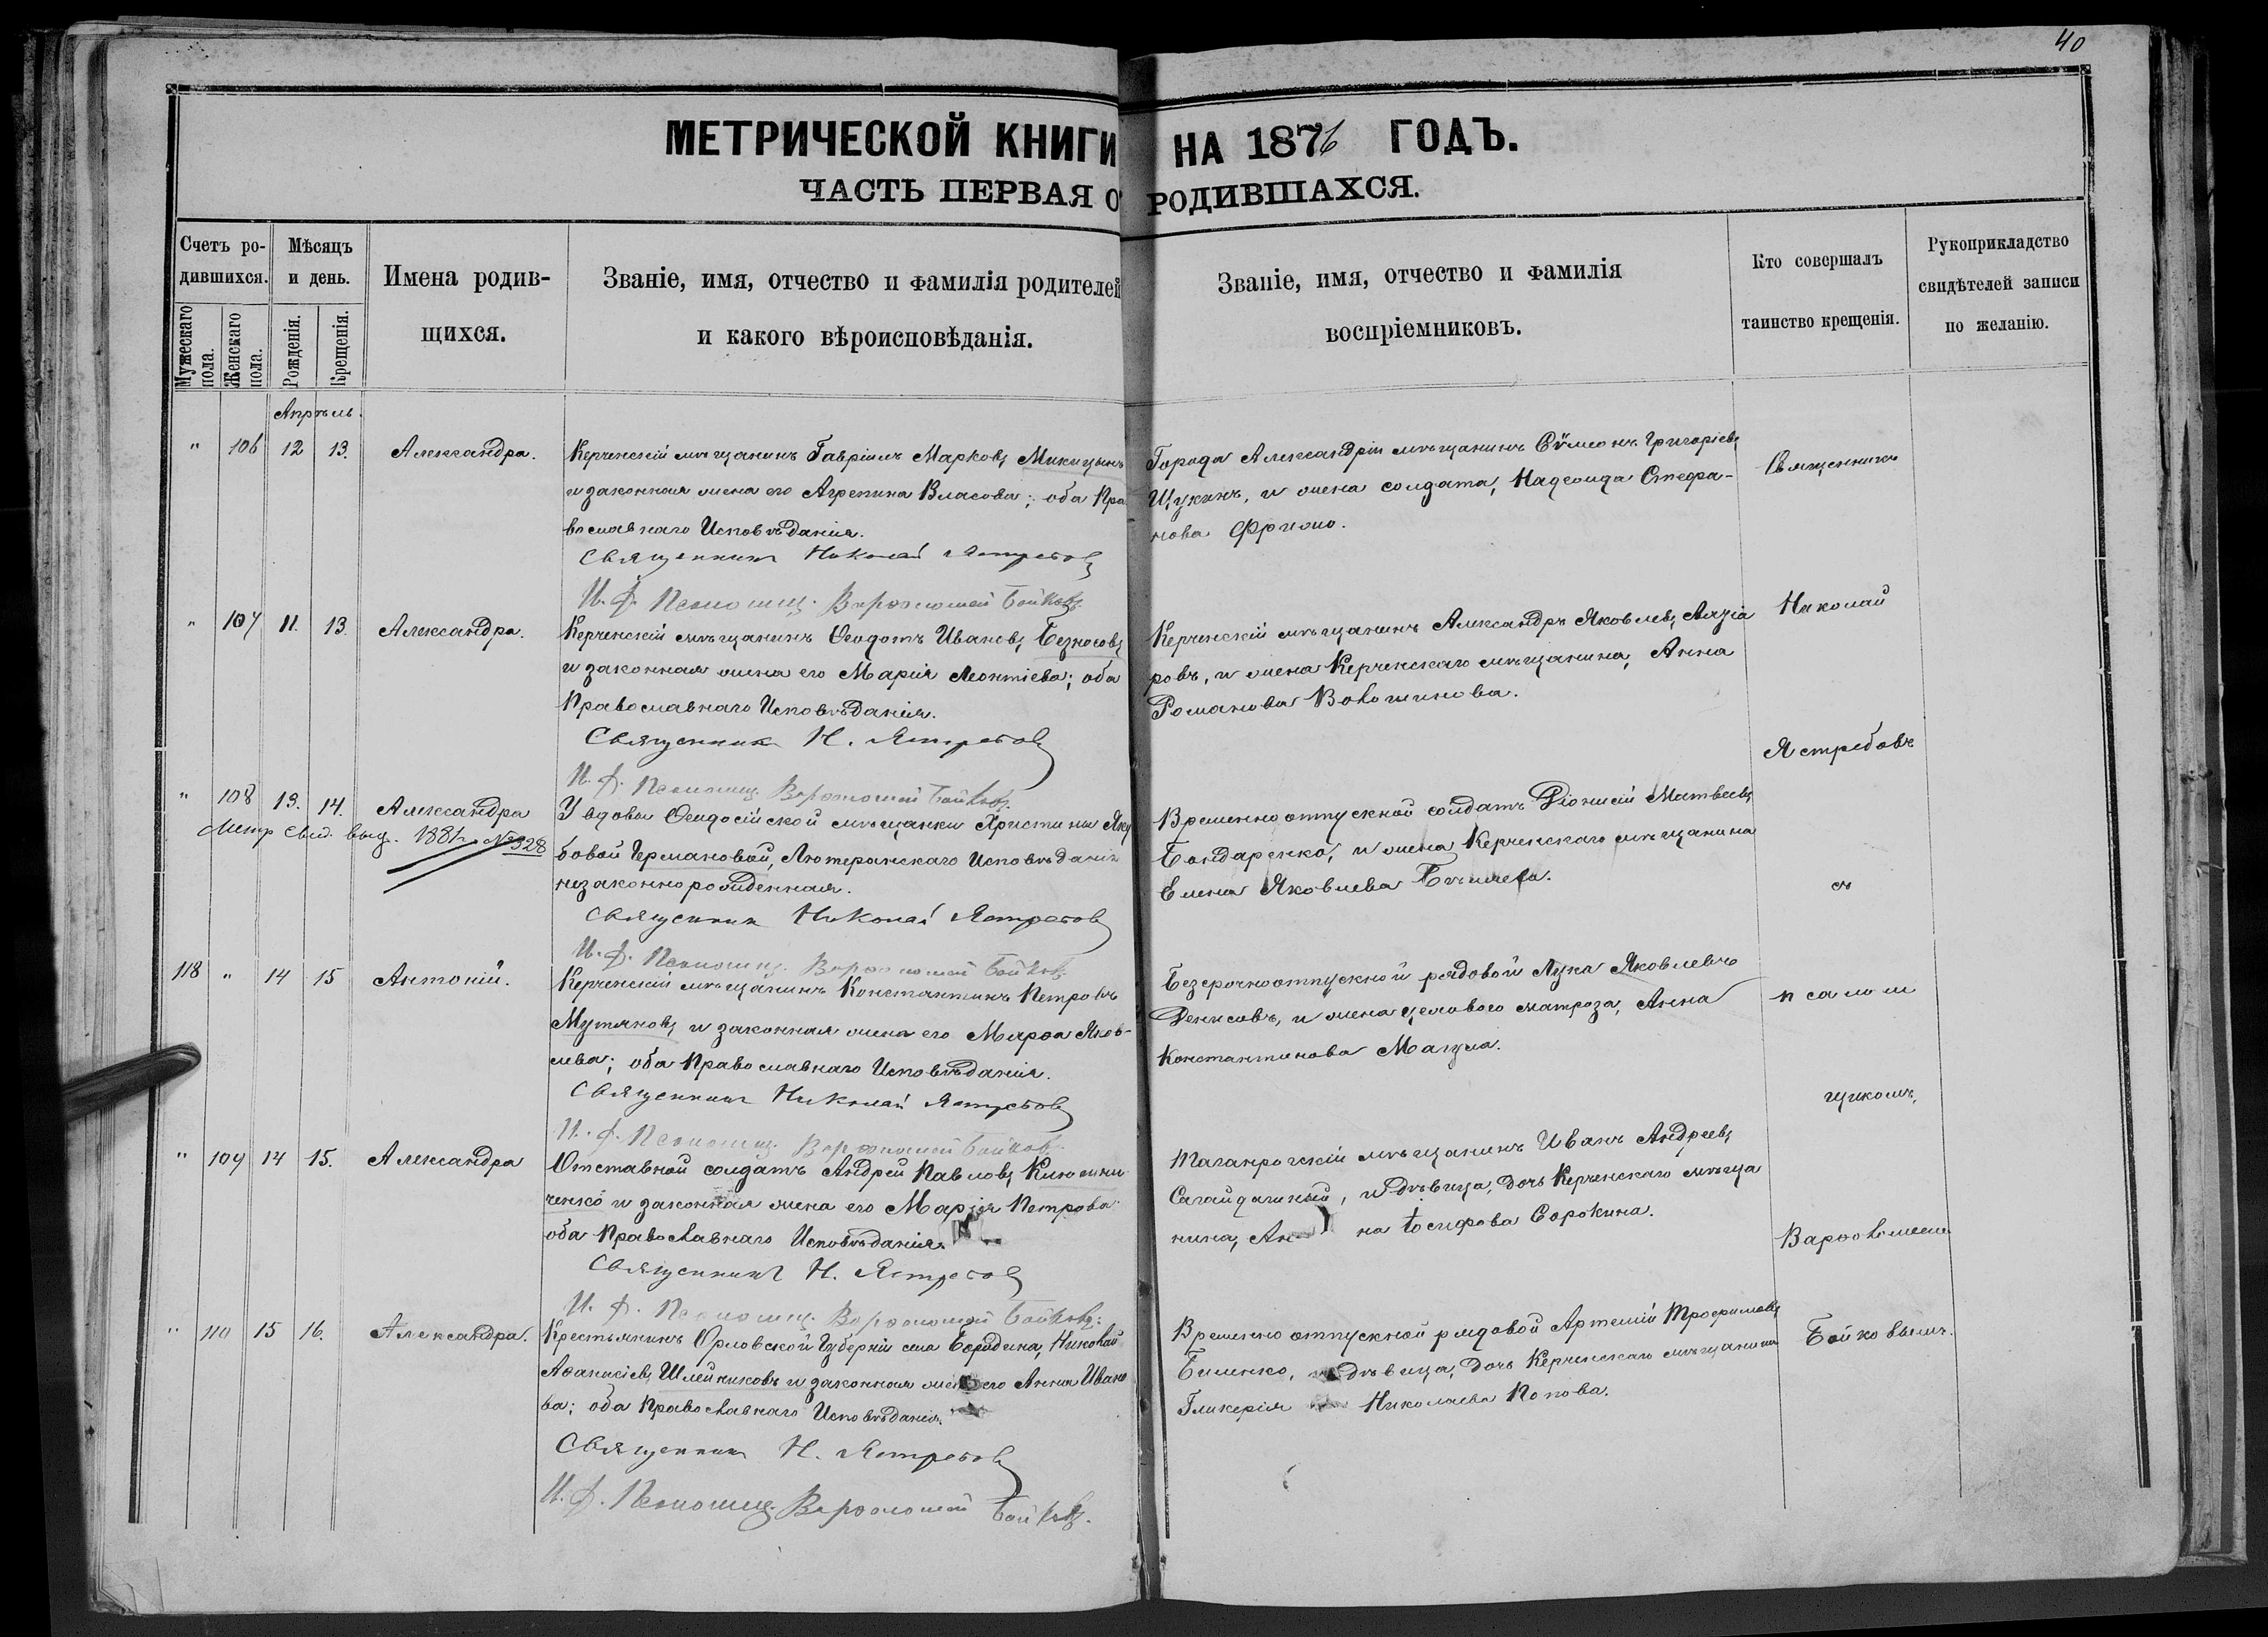 40
МЕТРИЧЕСКОЙ КНИГИ НА 1876 ГОДЪ.
ЧАСТЬ ПЕРВАЯ О РОДИВШАХСЯ.
Счетъ ро-
дившихся.
Мужескаго пола.
Женскаго пола.
Мѣсяцъ
и день.
Рожденія.
Крещенія.
Имена родив-
щихся.
Званіе, имя, отчество и фамилія родителей
и какого вѣроисповѣданія.
Званіе, имя, отчество и фамилія
воспріемниковъ.
Кто совершалъ
таинство крещенія.
Рукоприкладство
свидѣтелей записи
по желанію.
Апрѣль.
" 106 12 13. Александра.
Керченскій мѣщанинъ Гавріилъ Марковъ Микицынъ
и законная жена его Агрепина Власова; оба Пра
вославнаго Исповѣданія.
Священникъ Николай Ястребовъ
И. Ф. Псаломщ. Варѳоломей Бойковъ.
Города Александріи мѣщанинъ Сѵмеонъ Григоріевъ
Щукинъ, и жена солдата, Надежда Стефа-
нова
" 107 11. 13. Александра.
Керченскій мѣщанинъ Ѳеодотъ Ивановъ Безносовъ
и законная жена его Марія Леонтіева; оба
Православнаго Исповѣданія.
Священникъ Н. Ястребовъ
И. Ф. Псаломщ. Варѳоломей Бойковъ.
Керченскій мѣщанинъ Александръ Яковлевъ
ровъ, и жена Керченскаго мѣщанина, Анна
Романова Волошинова.
" 108 13. 14. Александра
Метр свид. выд. 1881 г. № 328
У вдовы Ѳеодосійской мѣщанки Христины Яку
бовой Германовой, Лютеранскаго Исповѣданія
незаконнорожденная.
Священникъ Николай Ястребовъ
И. Ф. Псаломщ. Варѳоломей Бойковъ.
Временноотпускной солдатъ Діонисій Матвеевъ
Бондаренко, и жена Керченскаго мѣщанина
Елена Яковлева
118 " 14 15 Антоній.
Керченскій мѣщанинъ Константинъ Петровъ
Мутяновъ и законная жена его Марѳа Яков-
лева; оба Православнаго Исповѣданія.
Священникъ Николай Ястребовъ
И. Ф. Псаломщ. Варѳоломей Бойковъ.
Безсрочноотпускной рядовой Лука Яковлевъ
Денисовъ, и жена матроза, Анна
Константинова
" 109 14 15. Александра
Отставной солдатъ Андрей Павловъ Клюшни
ченко и законная жена его Марія Петрова
оба Православнаго Исповѣданія.
Священникъ Н. Ястребовъ
И. Ф. Псаломщ. Варѳоломей Бойковъ.
Таганрогскій мѣщанинъ Иванъ Андреевъ
Сагайдачный, и дѣвица, дочь Керченскаго мѣща
нина, Анна Іосифова Сорокина.
" 110 15 16. Александра.
Крестьянинъ Орловской Губерніи села Николай
Аѳанасіевъ Шлейниковъ и законная жена его Анна Ивано
ва; оба Православнаго Исповѣданія.
Священникъ Н. Ястребовъ
И. Ф. Псаломщ. Варѳоломей Бойковъ.
Временно отпускной рядовой Артемій Трофимовъ
Биленко, дѣвица, дочь Керченскаго мѣщанина
Гликерія Николаева Попова.
Священникъ
Николай
Ястребовъ
съ
псалом
щикомъ,
Варѳоломеемъ
Бойковымъ.